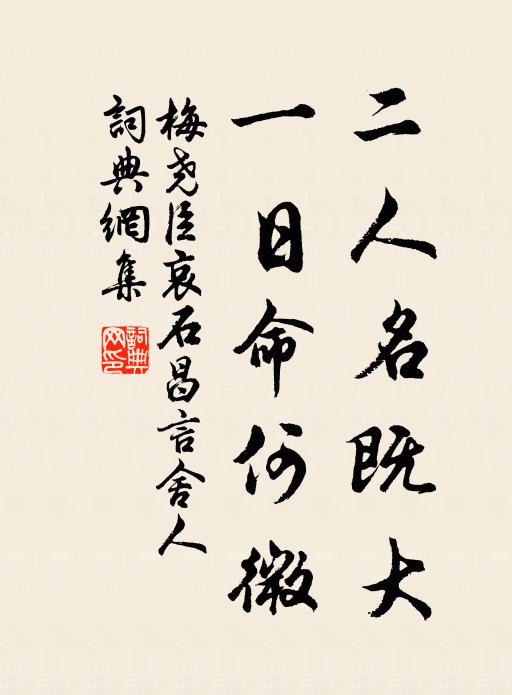 二人名既大
一日命何微
梅尧臣哀石昌言舍人
詞典網集
詞典
网印